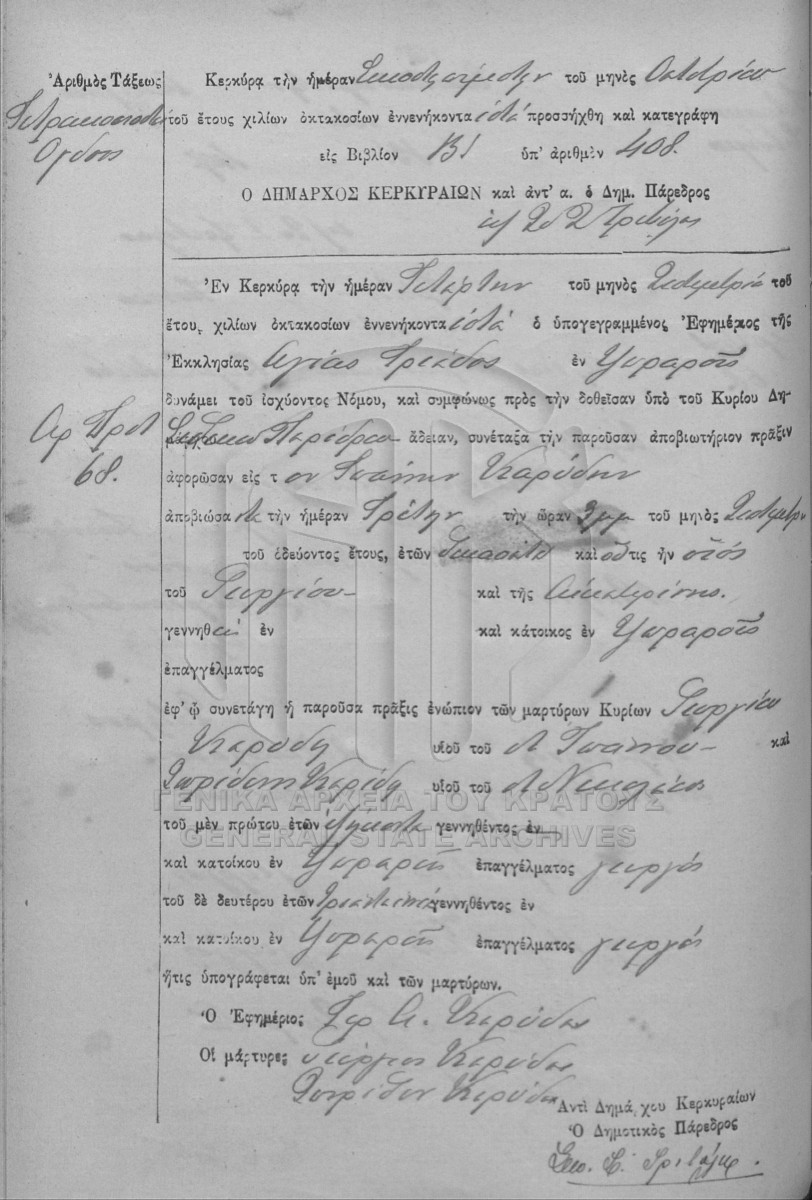 Ἀριθμὸς Τάξεως
Τετρακοσιοστὸς
Ὄγδοος
Κερκύρᾳ τὴν ἡμέραν Εικοστὴν πέμπτην τοῦ μηνὸς Οκτωβρίου
τοῦ ἔτους χιλίων ὀκτακοσίων ἐννενήκοντα ἑπτά προσήχθη καὶ κατεγράφη
εἰς Βιβλίον ΙΒ΄ ὑπ' ἀριθμὸν 408.
Ο ΔΗΜΑΡΧΟΣ ΚΕΡΚΥΡΑΙΩΝ καὶ ἀντ' α. ὁ Δημ. Πάρεδρος
Ἐν Κερκύρᾳ τὴν ἡμέραν Τετάρτην τοῦ μηνὸς Σεπτεμβρίου τοῦ
ἔτους χιλίων ὀκτακοσίων ἐννενήκοντα ἑπτά ὁ ὑπογεγραμμένος Ἐφημέριος τῆς
Ἐκκλησίας Αγίας Τριάδος ἐν Ψωραροῖς
δυνάμει τοῦ ἰσχύοντος Νόμου, καὶ συμφώνως πρὸς τὴν δοθεῖσαν ὑπὸ τοῦ Κυρίου Δη-
Παρέδρου ἄδειαν, συνέταξα τὴν παροῦσαν ἀποβιωτήριον πρᾶξιν
Αρ Πρωτ
68.
ἀφορῶσαν εἰς τ ον Ιωάννην Καρύδην
ἀποβιώσαντα τὴν ἡμέραν Τρίτην τὴν ὥραν 3 μμ τοῦ μηνὸς Σεπτεμβρίου
τοῦ ὁδεύοντος ἔτους, ἐτῶν καὶ ὅςτις ἦν υἱός
τοῦ Γεωργίου καὶ τῆς Αἰκατερίνης.
γεννηθεὶς ἐν καὶ κάτοικος ἐν Ψωραροῖς
ἐπαγγέλματος
ἐφ' ᾧ συνετάγη ἡ παροῦσα πρᾶξις ἐνώπιον τῶν μαρτύρων Κυρίων Γεωργίου
Καρύδη υἱοῦ τοῦ Ιωάννου καὶ
Σπυρίδων Καρύδη υἱοῦ τοῦ Νικολάου
ΓΕΝΙΚΑ ΑΡΧΕΙΑ ΤΟΥ ΚΡΑΤΟΥΣ
GENERAL STATE ARCHIVES
τοῦ μὲν πρώτου ἐτῶν ἑξήκοντα γεννηθέντος ἐν
καὶ κατοίκου ἐν Ψωραροῖς ἐπαγγέλματος γεωργός
τοῦ δὲ δευτέρου ἐτῶν γεννηθέντος ἐν
καὶ κατοίκου ἐν Ψωραροῖς ἐπαγγέλματος γεωργός
ἥτις ὑπογράφεται ὑπ' ἐμοῦ καὶ τῶν μαρτύρων.
Ὁ Ἐφημέριος Καρύδης
Οἱ μάρτυρες Γεώργιος Καρύδης
Σπυρίδων Καρύδης
Ἀντὶ Δημάρχου Κερκυραίων
Ὁ Δημοτικὸς Πάρεδρος